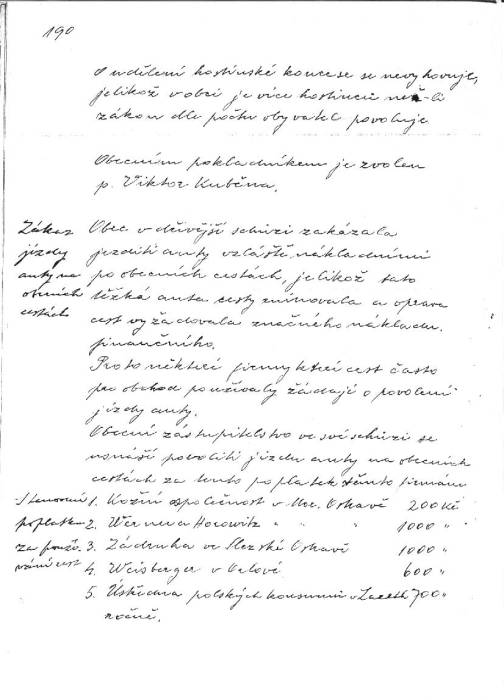 190
O udělení hostinské koncese se nevyhovuje,
jelikož v obci je více hostinců než-li
zákon dle počtu obyvatel povoluje
Obecním pokladníkem je zvolen
p. Viktor Kuběna.
Zákaz
jízdy
auty na
obecních
cestách
Obec v dřívější schůzi zakázala
jezditi auty vzláště nákladními
po obecních cestách, jelikož tato
těžká auta cesty zninovala a oprava
cest vyžadovala značného nákladu
finančního.
Proto někteří firmy kteří cest často
pro obchod používaly žádají o povolení
jízdy auty.
Obecní zastupitelstvo ve své schůzi se
usnáší povoliti jízdu auty na obecních
cestách za tento poplatek těmto firmám
Stanovení
poplatku
za použí-
vání cest
1. Kožní společnost v Mor. Ostravě 200 Kč
2. Werner a Horowitz " " 1000 "
3. Zádruha ve Slezské Ostravě 1000 "
4. Weisberger v Orlové 600 "
5. Ústředna polských konsumů v 700 "
ročně.